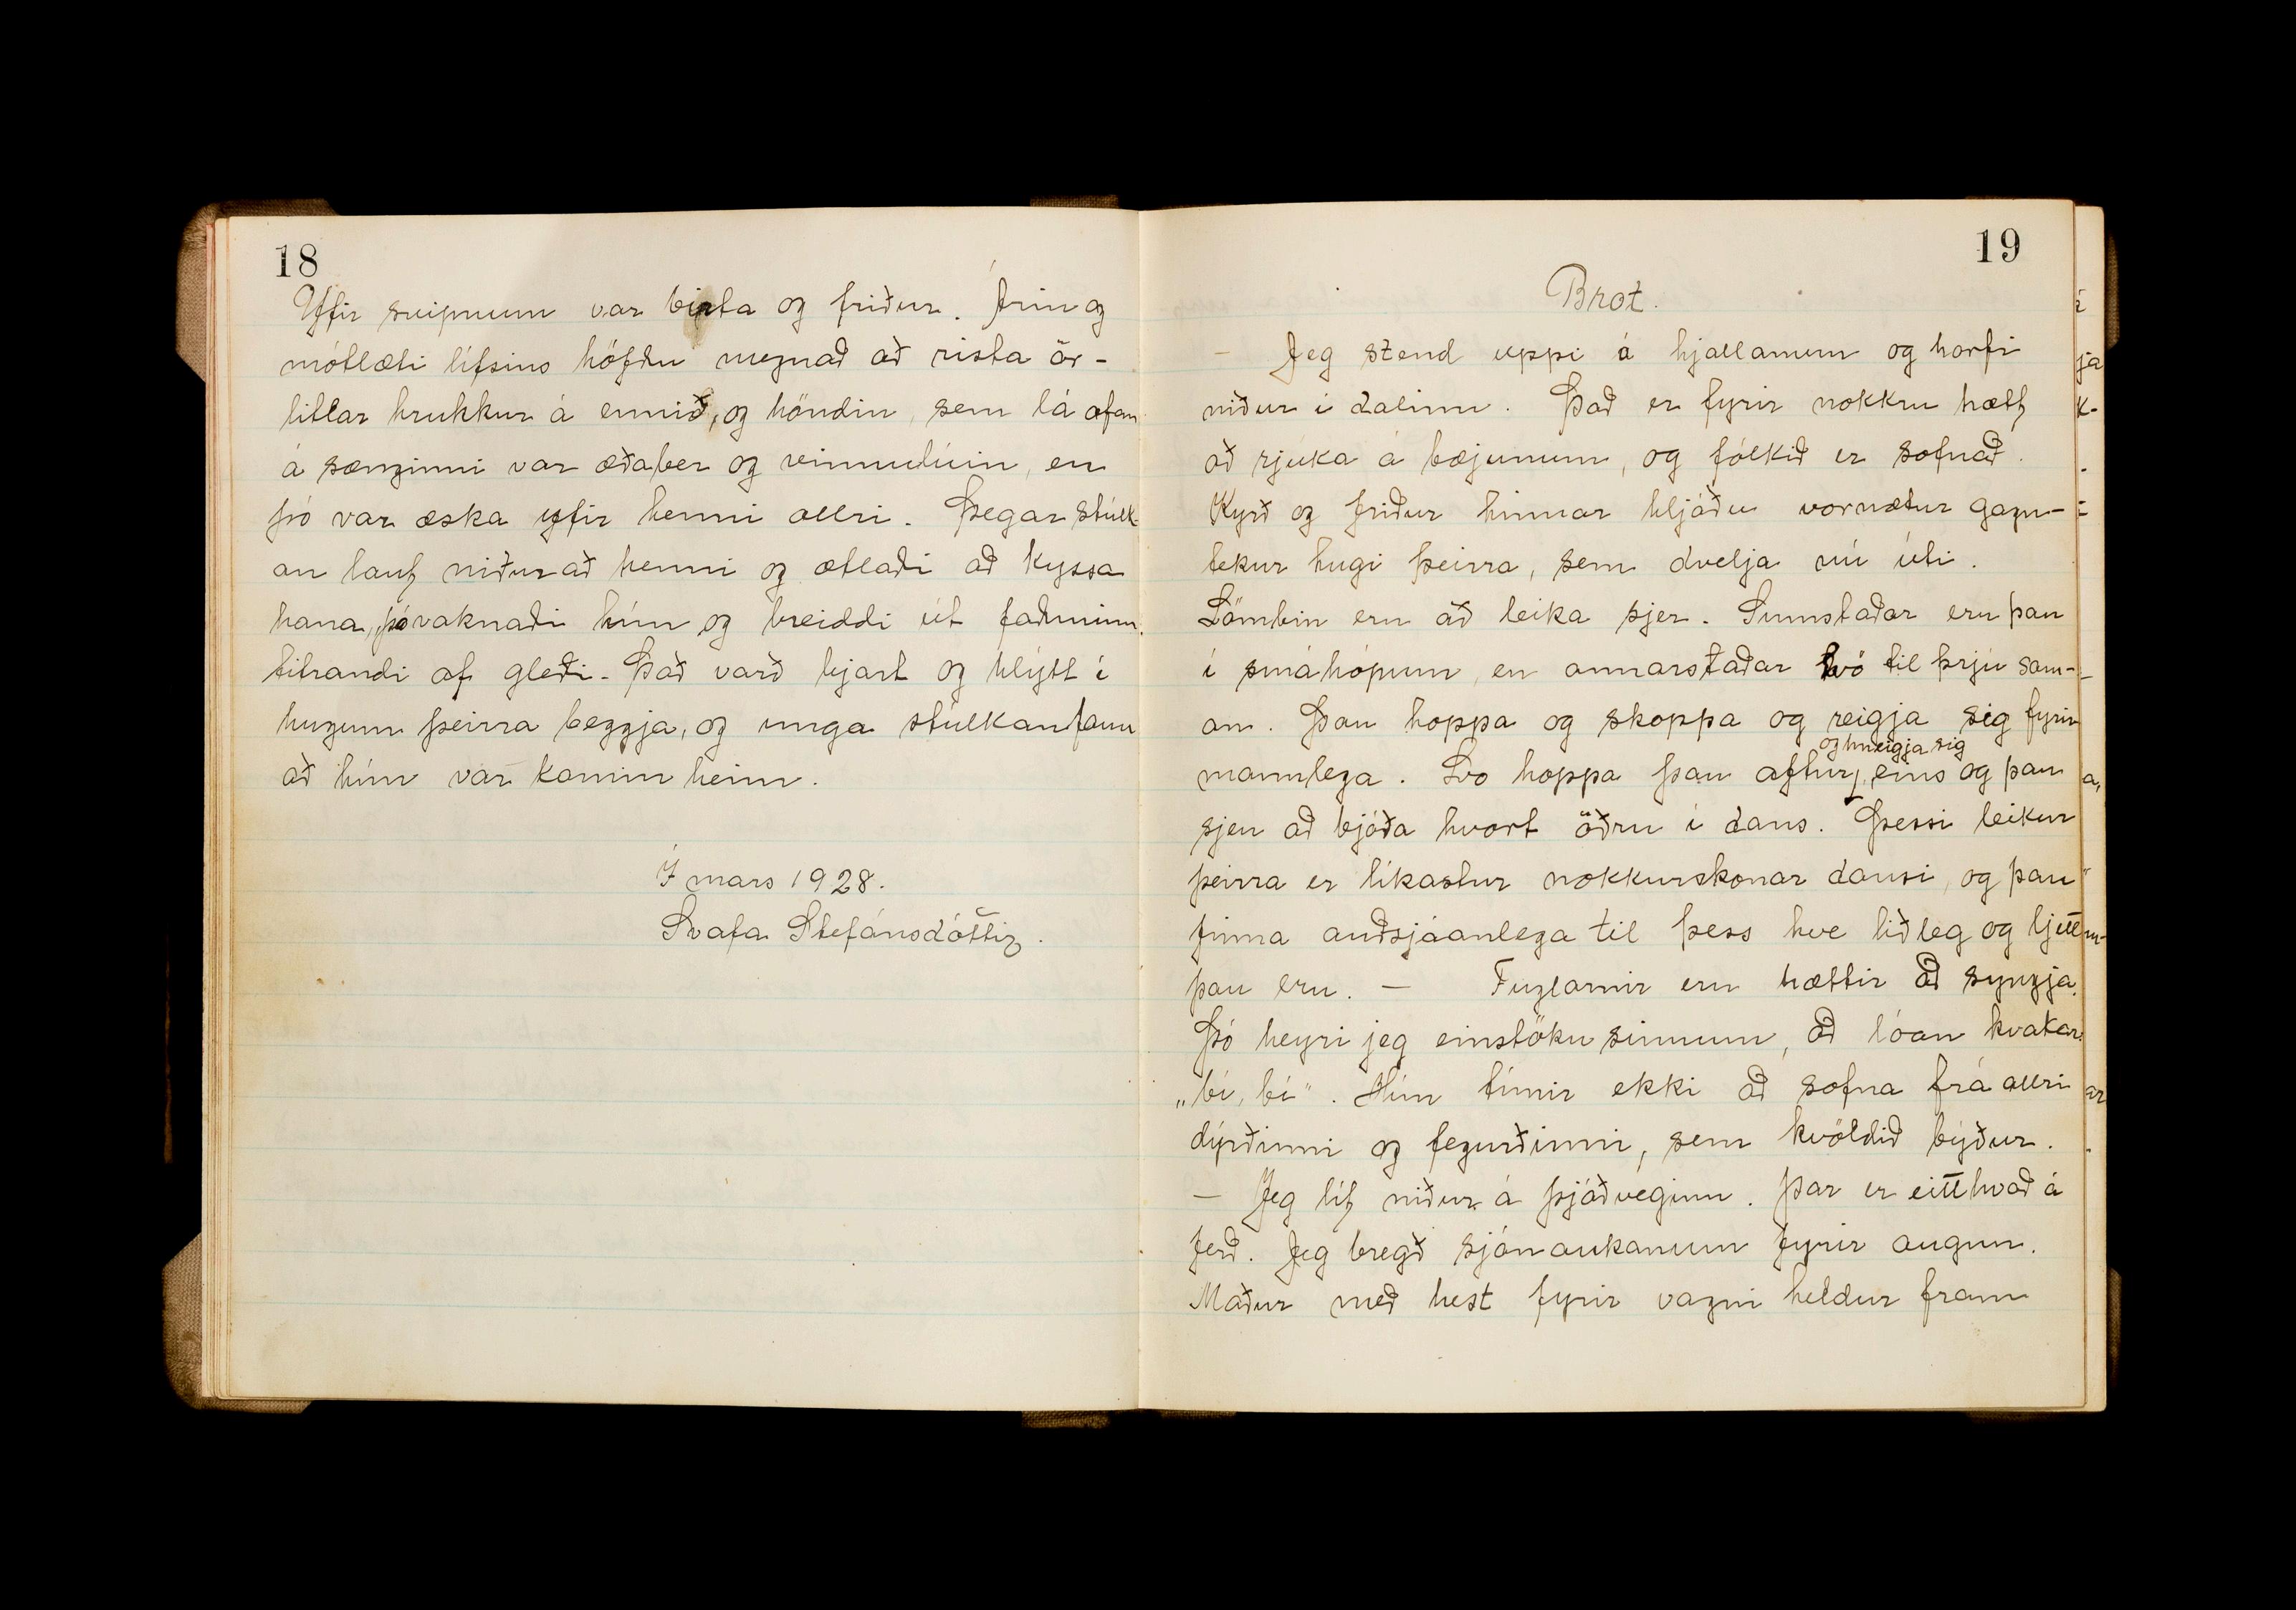 18
Yfir svipnum var birta og friður. Árin og
mótlæti lífsins höfðu megnað að rista ör-
litlar hrukkur á ennið, og höndin, sem lá ofan
á sænginni var æðaber og vinnulúin, en
þó var æska yfir henni allri. Þegar stúlk-
an laut niður að henni og ætlaði að kyssa
hana, þá vaknaði hún og breiddi út faðminn
titrandi af gleði. Það varð bjart og hlýtt í
hugum þeirra beggja, og unga stúlkan fann
að hún var komin heim.
Í mars 1928.
Svafa Stefánsdóttir.
19
Brot.
– Jeg stend uppi á hjallanum og horfi
niður í dalinn. Það er fyrir nokkru hætt
að rjúka á bæjunum, og fólkið er sofnað.
Kyrð og friður hinnar hljóðu vornætur gagn-
tekur hugi þeirra, sem dvelja nú úti.
Lömbin eru að leika sjer. Sumstaðar eru þau
í smáhópum, en annarstaðar tvö til þrjú sam-
an. Þau hoppa og skoppa og reigja sig fyrir
og hneigja sig
mannlega. Svo hoppa þau aftur, eins og þau
sjeu að bjóða hvort öðru í dans. Þessi leikur
þeirra er líkastur nokkurskonar dansi, og þau
finna auðsjáanlega til þess hve liðleg og ljett
þau eru. – Fuglarnir eru hættir að syngja.
Þó heyri jeg einstöku sinnum, að lóan kvakar
„bí, bí". Hún tímir ekki að sofna frá allri
dýrðinni og fegurðinni, sem kvöldið býður.
– Jeg lít niður á þjóðveginn. Þar er eitthvað á
ferð. Jeg bregð sjónaukanum fyrir augun.
Maður með hest fyrir vagni heldur fram